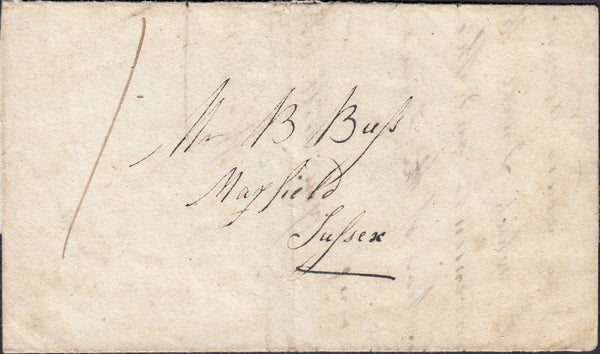 1
Mr B Buss
Mayfield
Sussex